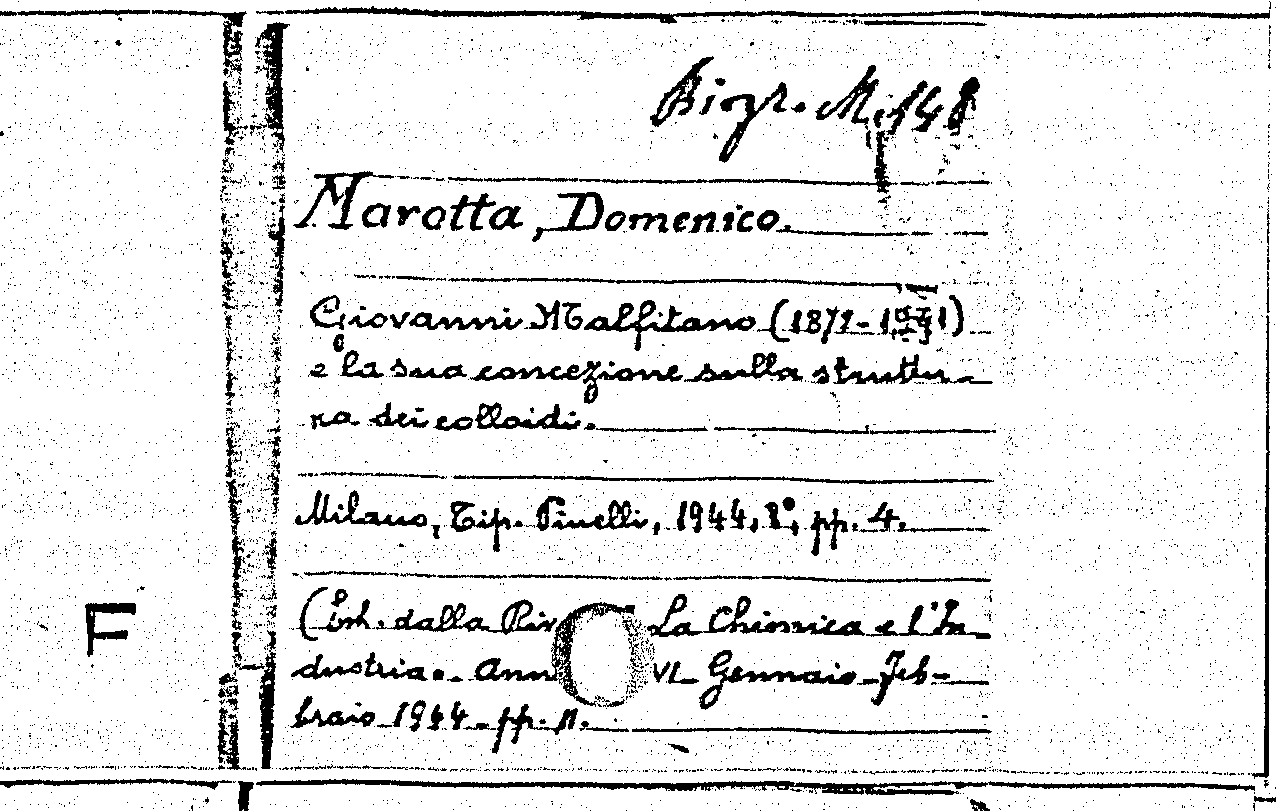 Biogr. M. 148
Marotta, Domenico.
Giovanni Malfitano (1872-1941)
e la sua concezione sulla struttu-
ra dei colloidi.
Milano, Tip. Pinelli, 1944, 8°, pp. 4.
(Est. dalla Riv La Chimica e l'In
dustria. - Ann VI Gennaio-Feb-
braio 1944 - pp.
F